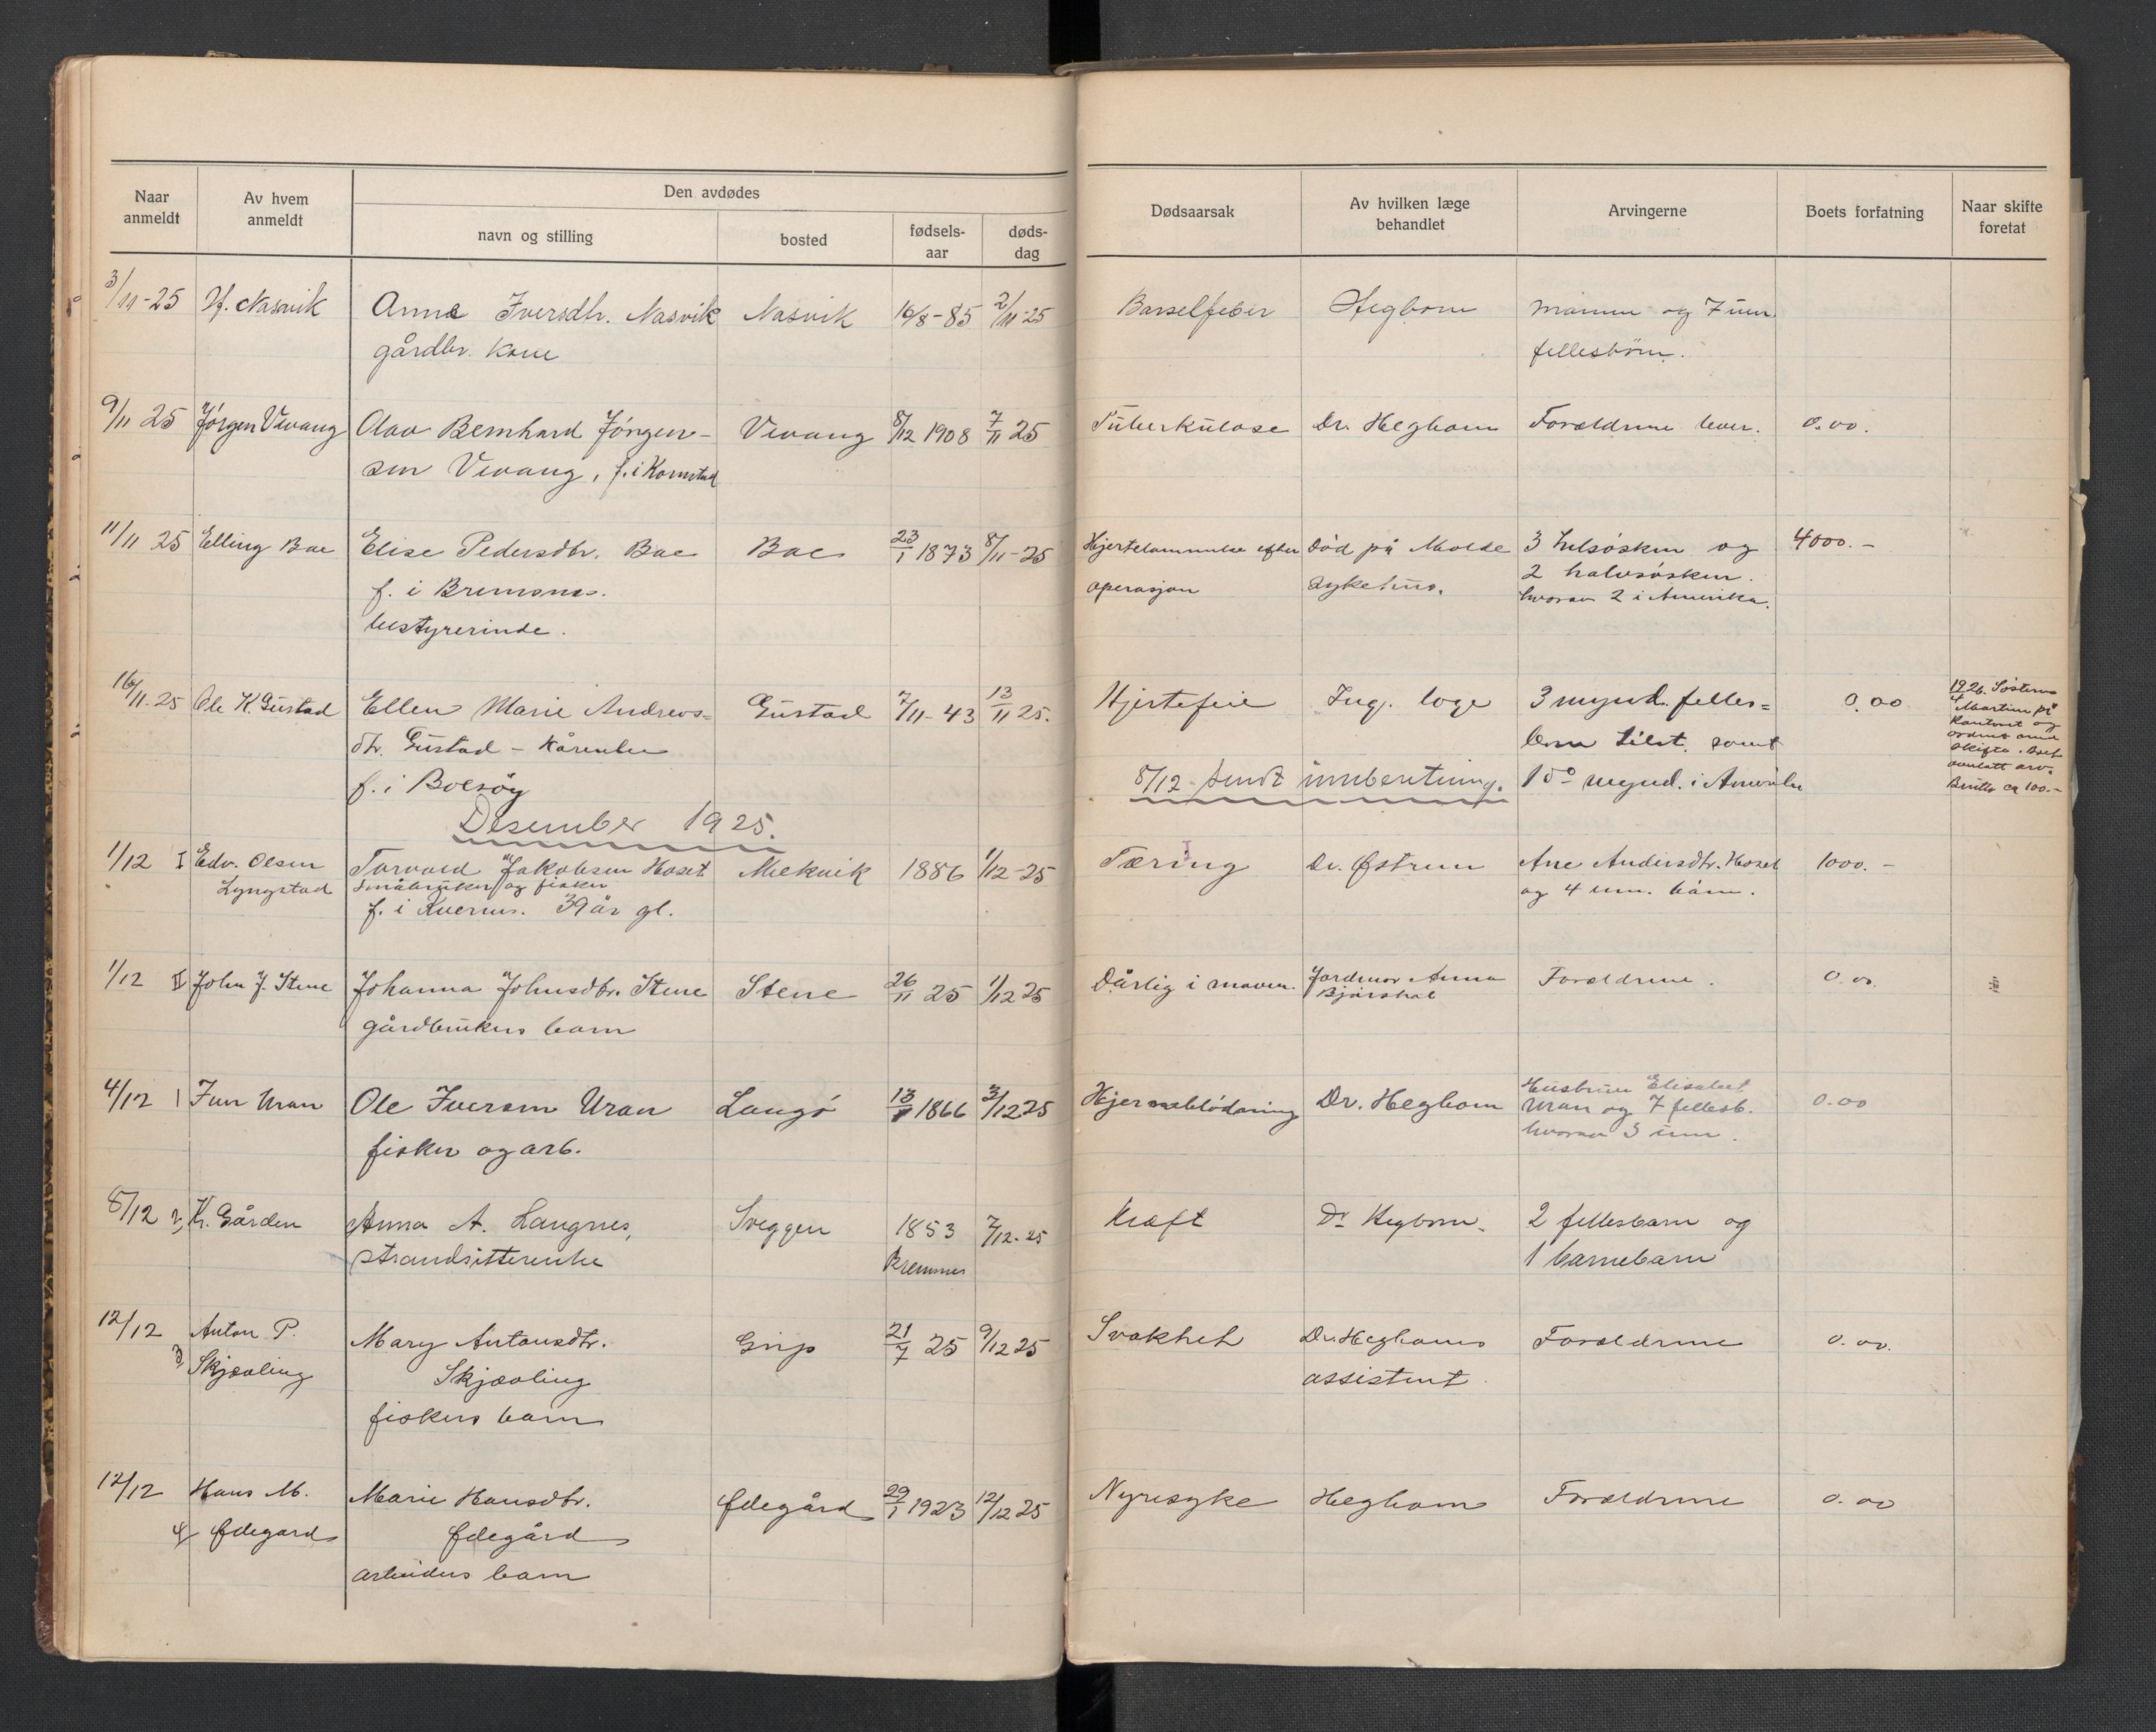 Naar anmeldt
Av hvem anmeldt
Den avdødes
navn og stilling
bosted
fødsels-aar
døds-dag
Dødsaarsak
Av hvilken læge behandlet
Arvingerne
Boets forfatning
Naar skifte foretat
3/11-25 Nasvik Anna Iversdtr. Nasvik Nasvik 16/8-85 2/11-25 Barselfeber Hegbom mannen og 7 um.
gårdbr. kone fellesbörn.
9/11 25 Jörgen Vevang Olav Bernhard Jörgen- Vevang 8/12 1908 7/11 25 Tuberkulose Dr. Hegbom Foreldrene lever. 0.00.
sen Vevang, f. i Kornstad
11/11 25 Elling Bae Elise Pedersdtr. Bae Bae 23/1 1873 8/11-25 Hjertelammelse efter död på Molde 3 helsösken og 4000.-
f. i Bremsnes. operasjon sykehus. 2 halvsösken.
bestyrerinde. hvorav 2 i Amerika.
16/11-25 Ole K. Gustad Ellen Marie Andreas- Gustad 7/11-43 13/11 25. Hjertefeil Ing. læge 3 mynd. felles- 0.00
dtr. Gustad - kårenke
f. i Bolsöy 1 do mynd. i Amerika
8/12 sendt innberetning.
1926. Sösteren
Martine på
Kontoret og
skifte. Boet
Brutto ca 100.-
Desember 1925.
1/12 I Edv. Olsen Torvald Jakobsen Hoset Mekvik 1886 1/12-25 Tæring Dr. Østrem Ane Andersdtr. Hoset 1000.-
Lyngstad småbruker og fisker og 4 um. barn.
f. i Kvernes. 39 år gl.
1/12 II John J. Stene Johanna Johnsdtr. Stene Stene 26/11 25 1/12 25 Dårlig i maven. Jordmor Anna Foreldrene. 0.00.
gårdbrukers barn
4/12 1 Iver Uran Ole Iversen Uran Langö 13/ 1866 3/12 25 Hjerneblödning Dr. Hegbom Hustruen Elisabet 0.00
fisker og arb. Uran og 7 fellesb.
hvorav 3 um.
8/12 2, K. Gården Anna A. Langnes, Sveggen 1853 7/12-25 Kræft Dr Hegbom. 2 fellesbarn og
strandsitterenke Bremsnes 1 barnebarn
12/12 Anton P. Mary Antonsdtr. Grip 21/7 25 9/12 25 Svakhet Dr. Hegboms Foreldrene 0.00.
3, Skjævling Skjævling assistent
fiskers barn
12/12 Hans M. Marie Hansdtr. Ødegård 29/1 1923 12/12 25 Nyresyke Hegbom Foreldrene 0.00
4/ Ødegard Ødegård
arbeiders barn